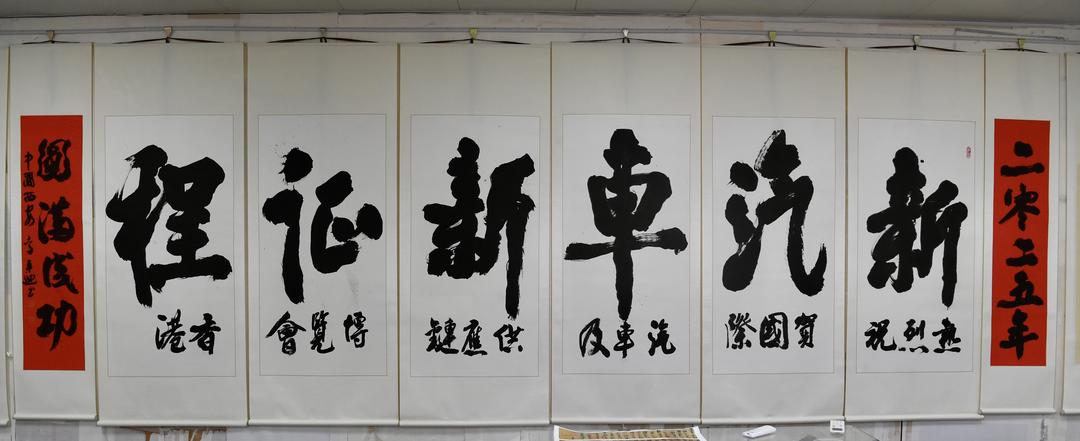 二零二五年
新汽車新征程
熱烈祝賀國際汽車及供應鏈博覽會香港
圓滿成功
中國西安